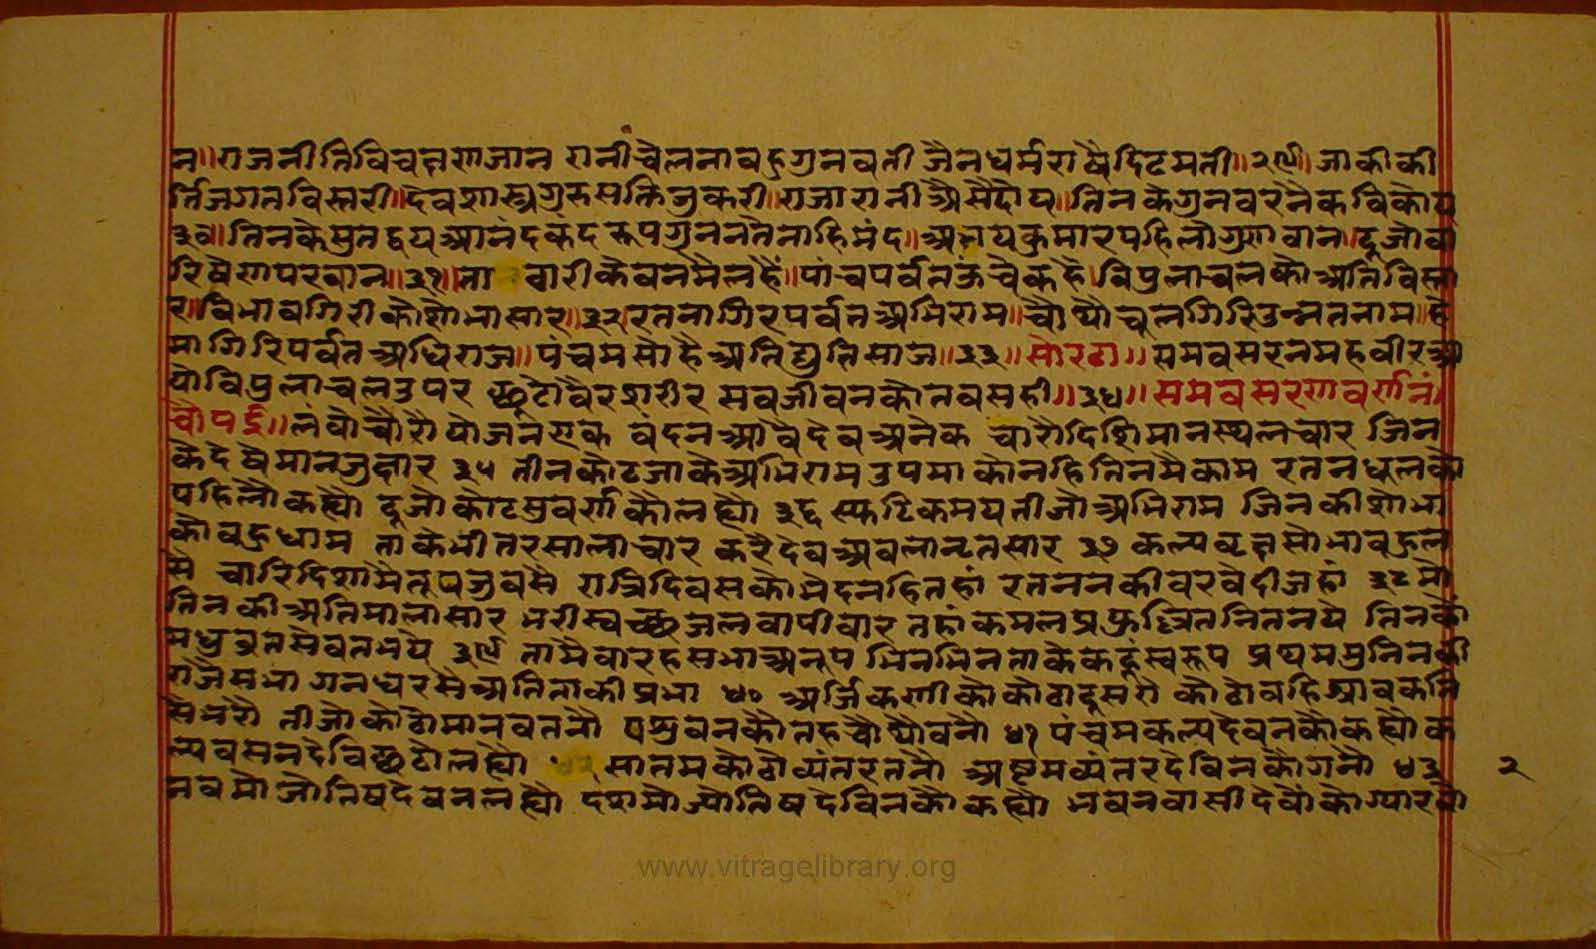 न॥राजनीतिविचक्षणजान रानीचेलनाबहुगुनवती जैनधर्मराषैदिटमती॥२९॥जाकीकी
र्तिजगतविस्तरी॥देवशास्त्रगुरुभक्तिजुकरी॥राजारानीअैसेदोय॥तिनकेगुनवरनैकविकोय
३०॥तिनकैसुतद्वयआनंदकंद रूपगुननतैनाहिमंद॥अभयकुमारपहिलौगुणवान॥दूजोवा
रिषेणपरवान॥३१॥ता वारीकैवनमैलहै॥पांचपर्वतऊंचैकहै।विपुलाचलकौअतिविस्ता
र॥विभावगिरीकौशोभासार॥३२॥रतनागिरपर्वतअभिराम॥चौथौचूलगिरिउन्नतनाम॥हे
मागिरिपर्वतअधिराज॥पंचमसोहैअतिद्युतिसाज॥३३॥सोरठा॥समवसरनमहवीरआ
योविपुलाचलउपर छूटोवैरशरीर सबजीवनकोतवसही॥३४॥समवसरणवर्णनं।
चौपई॥लंबोचौरौयोजनएक वंदनआवैदेवअनेक चारौदिशिमानस्थलचार जिन
कैदेषैमानजुक्षार ३५ तीनकोटजाकेअभिराम उपमाकोनहितिनमैकाम रतनधूलको
पहिलौकह्यौ दूजोकोटसुवर्णकौलह्यौ ३६ स्फटिकमयतीजोअभिराम जिनकीशोभा
कोबहुधाम ताकेभीतरसालाचार करैदेवअबलानृतसार ३७ कल्पवृक्षसोभावहुल
सै चारिदिशामैतूपजुबसै रात्रिदिवसकोभेदनहितहां रतननकीवरवेदीजहां ३८ मो
तिनकीअतिमालासार भरीस्वच्छजलवापीवार तहांकमलप्रफुल्लितनितनये तिनकों
मधुव्रतसेवतभये ३९ तामैबारहसभाअनूप भिनभिनताकेकहूंस्वरूप प्रथममुनिनकी
राजैसभा गनधरसैअतिताकीप्रभा ४० अर्जिकाणीकोकोठादूसरौ कोठोवहिश्रावकनि
सैभरौ तीजोकोठोमानवतनौ पसुवनकोतहचौथौवनौ ४१ पंचमकल्पदेवनकौकह्यौक
ल्पवसनदेविछठोलह्यौ ४२ सातमकोठोव्यंतरतनौ अष्टमव्यंतरदेविनकौगनौ ४३
नवमोजोतिषदेवनलह्यौ दशमोज्योतिषदेविनकौकह्यौ भवनवासीदेवोंकोग्यारवौ
२
www.vitragelibrary.org